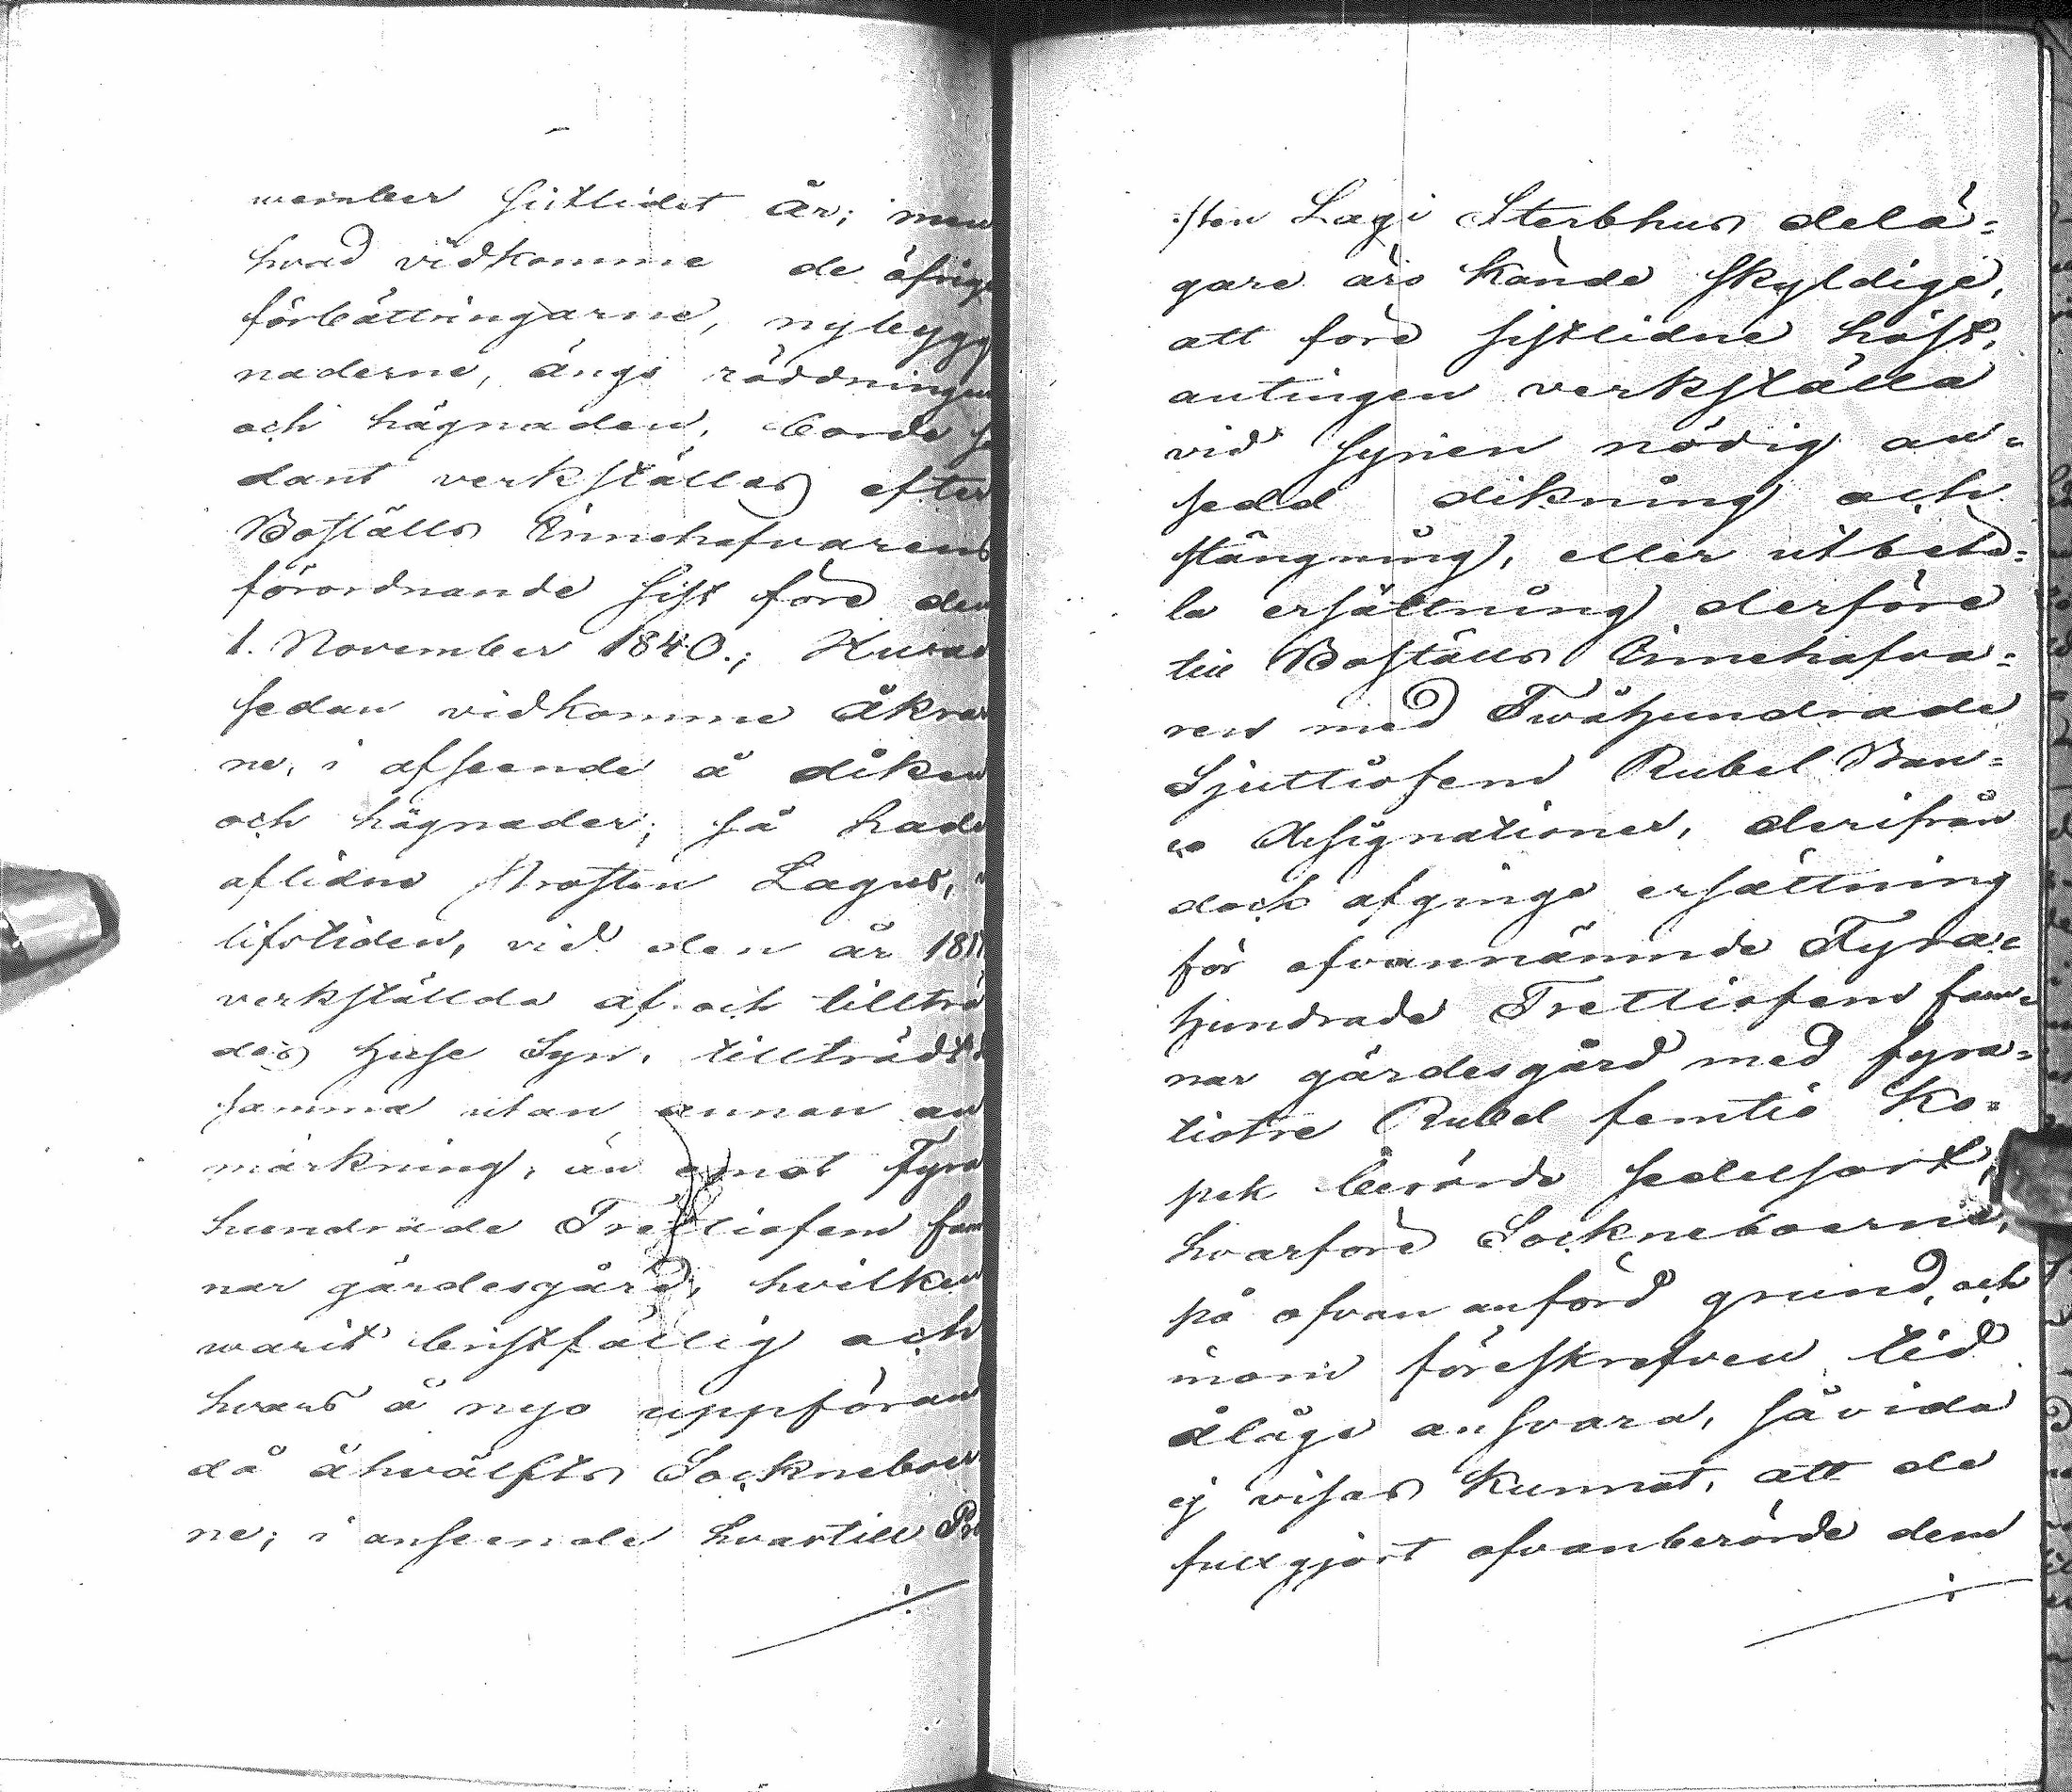 vember sistlidet år; men
hvad vidkomme de öfrige
förbättringarne, nybygg
naderne, ängs röddningen
och hägnaden, borde så
dant verkställas efter
Boställs Innehafvarens
förordnande sist före den
1. November 1840.; Hvad
sedan vidkomme åkrar
ne, i afseende å diken
och hägnader; så hade
aflidne Prosten Lagus, i
lifstiden, vid den år 181
verkställda af och tillträ
des huse Syn, tillträdt
samma utan annan an
märkning, än emot Fyra
hundrade Trettiofem fam
nar gärdesgård, hvilken
warit bristfällig och
hvars å nyo uppföran
då åhvälfts Sockneboer
ne; i anseende hvartill Pro
sten Lagi Sterbhus delä=
gare äro kände skyldige,
att före sistlidne höst,
antingen verkställa
vid Synen nödig an=
sedd dikning och
stängning, eller utbeta=
la ersättning derföre
till Boställs Innehafva=
ren med Tvåhundrade
Sjuttiofem Rubel Ban=
co Assignationer, derifrån
dock afginge ersättning
för ofvannämnde Fyra=
hundrade Trettiofem fam=
nar gärdesgård med fyra=
tiotre Rubel femtio Ko=
pek berörde sedelsort,
hvarföre Sockneboerne,
på ofvan anförd grund, och
inom föreskrefven tid
ålåge ansvara, såvida
ej visas kunnat, att de
fullgjort ofvanberörde dem